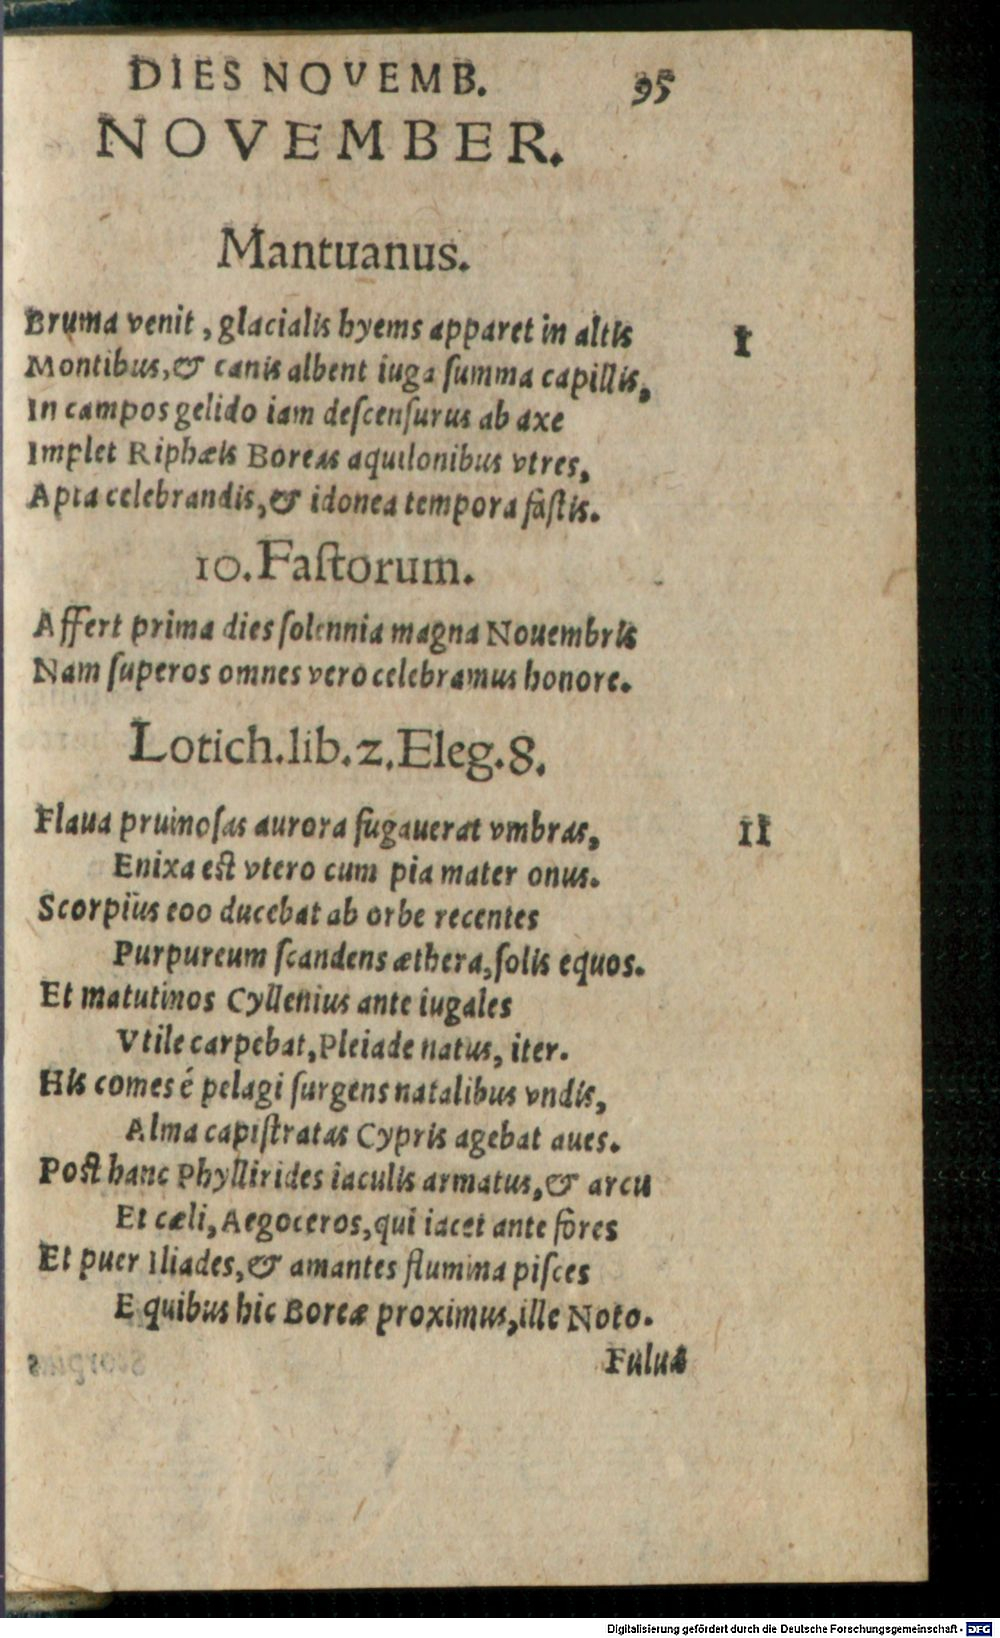 DIES NOVEMB. 95
NOVEMBER.
Mantuanus.
Bruma venit, glacialis hyems apparet in altis I
Montibus, & canis albent iuga ſumma capillis,
In campos gelido iam deſcenſurus ab axe
Implet Riphæis Boreas aquilonibus vtres,
Apta celebrandis, & idonea tempora faſtis.
10. Faſtorum.
Affert prima dies ſolennia magna Nouembris
Nam ſuperos omnes vero celebramus honore.
Lotich. lib. 2. Eleg. 8.
Flaua pruinoſas aurora fugauerat vmbras, II
Enixa eſt vtero cum pia mater onus.
Scorpius eoo ducebat ab orbe recentes
Purpureum ſcandens æthera, ſolis equos.
Et matutinos Cyllenius ante iugales
Vtile carpebat, Pleiade natus, iter.
His comes é pelagi ſurgens natalibus vndis,
Alma capiſtratas Cypris agebat aues.
Poſt hanc Phyllirides iaculis armatus, & arcu
Et cæli, Aegoceros, qui iacet ante fores
Et puer Iliades, & amantes flumina piſces
E quibus hic Boreæ proximus, ille Noto.
Fulua
Digitalisierung gefördert durch die Deutsche Forschungsgemeinschaft - DFG